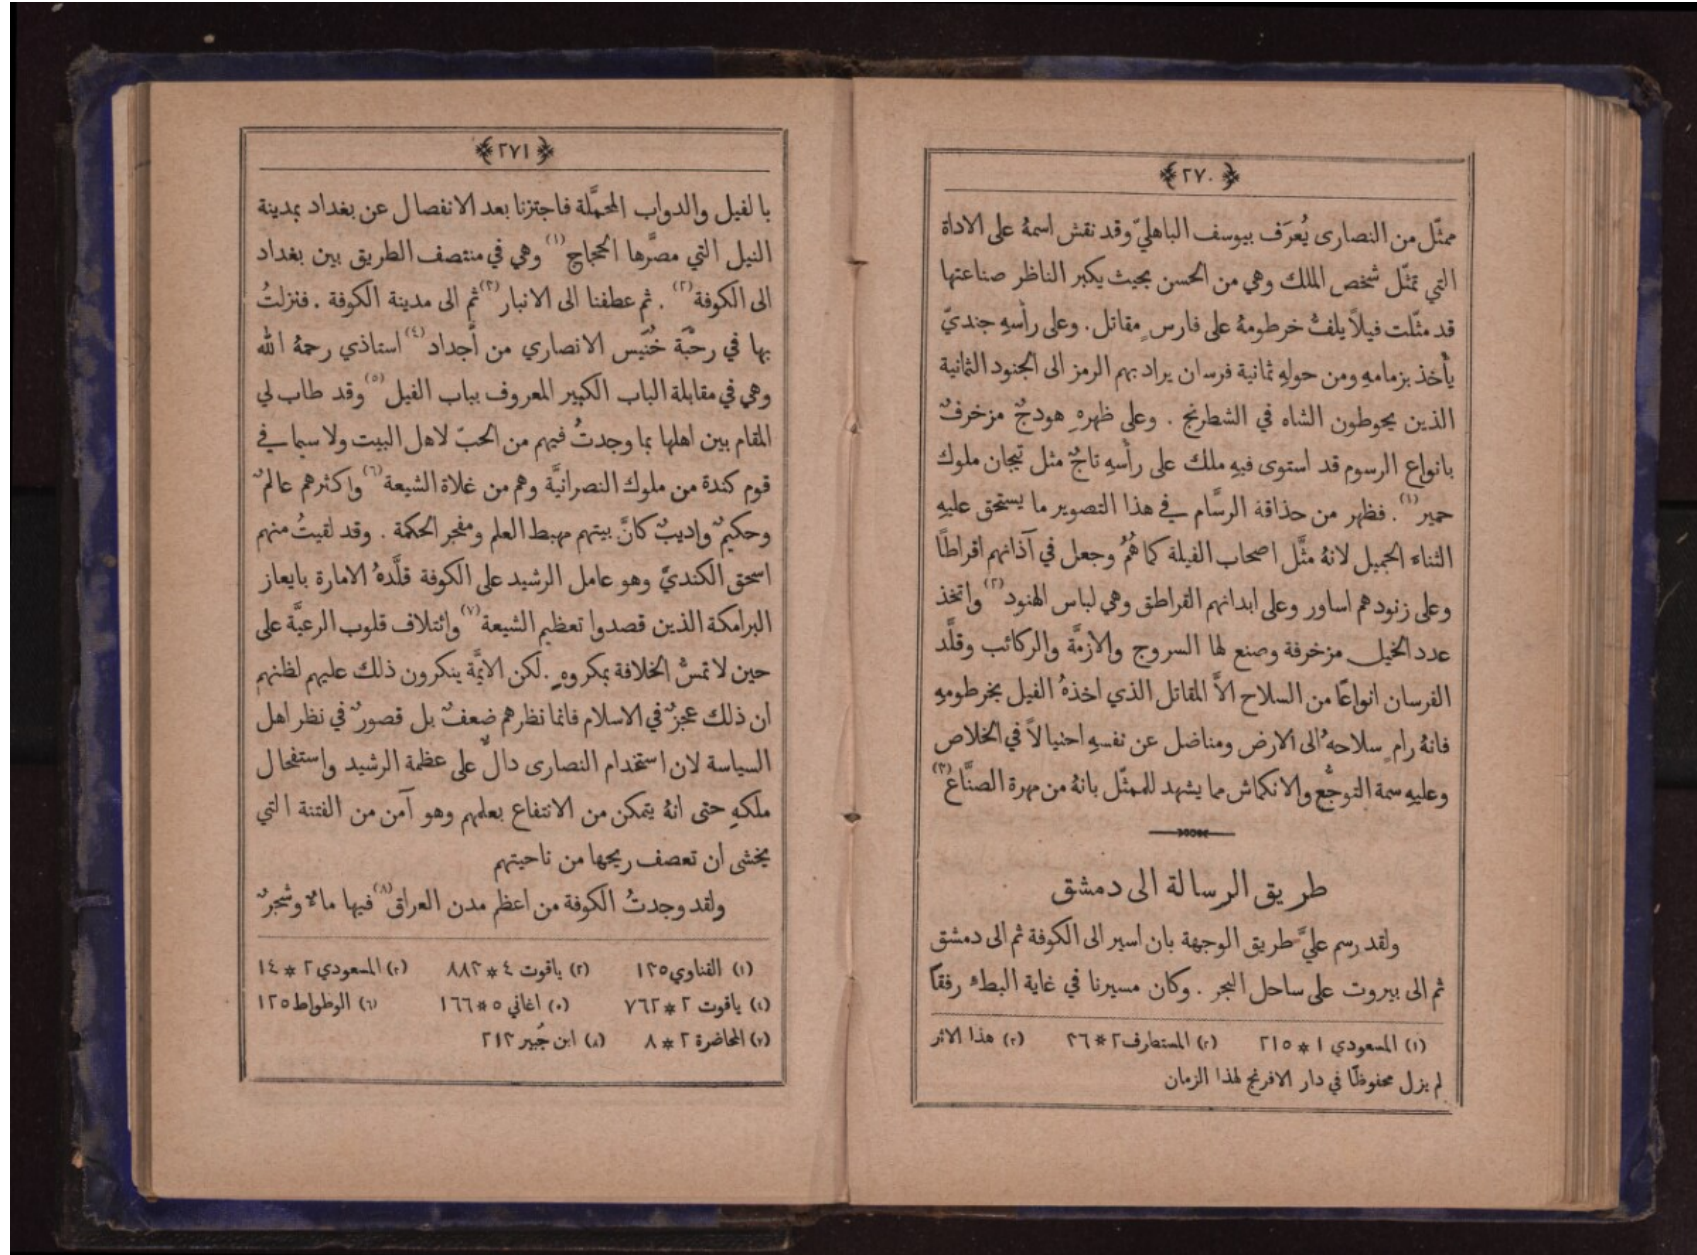 ﴿٢٧٠﴾
ممثّل من النصارى يُعرَف بيوسف الباهليّ وقد نقش اسمهُ على الاداة
التي تمثّل شخص الملك وهي من الحسن بحيث يكبر الناظر صناعتها
قد مثّلت فيلاً يلفُّ خرطومهُ على فارسٍ مقاتل. وعلى رأسهِ جنديّ
يأخذ بزمامهِ ومن حولهِ ثمانية فرسان يراد بهم الرمز الى الجنود الثمانية
الذين يحوطون الشاه في الشطرنج . وعلى ظهرهِ هودجٌ مزخرفٌ
بانواع الرسوم قد استوى فيهِ ملك على رأسهِ تاجٌ مثل تيجان ملوك
حمير(١). فظهر من حذاقة الرسَّام في هذا التصوير ما يستحق عليهِ
الثناء الجميل لانهُ مثَّل اصحاب الفيلة كما هُمُ وجعل في آذانهم اقراطًا
وعلى زنودهم اساور وعلى ابدانهم القراطق وهي لباس الهنود(٢) واتخذ
عدد الخيل مزخرفة وصنع لها السروج والازمَّة والركائب وقلَّد
الفرسان انواعًا من السلاح الاَّ المقاتل الذي اخذهُ الفيل بخرطومهِ
فانهُ رامٍ سلاحهُ الى الارض ومناضل عن نفسهِ احنيالاً في الخلاص
وعليهِ سمة التوجُّع والانكماش مما يشهد للممثّل بانهُ من مهرة الصنَّاع(٣)
طريق الرسالة الى دمشق
ولقد رسم عليَّ طريق الوجهة بان اسير الى الكوفة ثم الى دمشق
ثم الى بيروت على ساحل البحر . وكان مسيرنا في غاية البطء رفقًا
(١) المسعودي ١ * ٢١٥ (٢) المستطرف ٢ * ٣٦ (٣) هذا الاثر
لم يزل محفوظًا في دار الافرنج لهذا الزمان
﴿٢٧١﴾
بالفيل والدواب المحمَّلة فاجتزنا بعد الانفصال عن بغداد بمدينة
النيل التي مصَّرها الحجاج(١) وهي في منتصف الطريق بين بغداد
الى الكوفة(٢) . ثم عطفنا الى الانبار(٣) ثم الى مدينة الكوفة . فنزلتُ
بها في رحْبَة خُنَيس الانصاري من أَجداد(٤) استاذي رحمهُ الله
وهي في مقابلة الباب الكبير المعروف بباب الفيل(٥) وقد طاب لي
المقام بين اهلها بما وجدتُ فيهم من الحبّ لاهل البيت ولا سيما في
قوم كندة من ملوك النصرانيَّة وهم من غلاة الشيعة(٦) واكثرهم عالمٌ
وحكيمٌ واديبٌ كانَّ بيتهم مهبط العلم ومفجر الحكمة . وقد لقيتُ منهم
اسحق الكنديَّ وهو عامل الرشيد على الكوفة قلَّدهُ الامارة بايعاز
البرامكة الذين قصدوا تعظيم الشيعة(٧) وائتلاف قلوب الرعيَّة على
حين لا تمسُّ الخلافة بمكروهٍ . لكن الايمَّة ينكرون ذلك عليهم لظنهم
ان ذلك عجزٌ في الاسلام فانما نظرهم ضعفٌ بل قصورٌ في نظر اهل
السياسة لان استخدام النصارى دالٌّ على عظمة الرشيد واستفحال
ملكهِ حتى انهُ يتمكن من الانتفاع بعلمهم وهو آمن من الفتنة التي
يخشى ان تعصف ريحها من ناحيتهم
ولقد وجدتُ الكوفة من اعظم مدن العراق(٨) فيها ماءٌ وشجرٌ
(١) القناوي ١٣٥ (٢) ياقوت ٤ * ٨٨٢ (٣) المسعودي ٢ * ١٤
(٤) ياقوت ٢ * ٧٦٢ (٥) اغاني ٥ * ١٦٦ (٦) الوطواط ١٢٥
(٧) المحاضرة ٢ * ٨ (٨) ابن جُبير ٢١٢